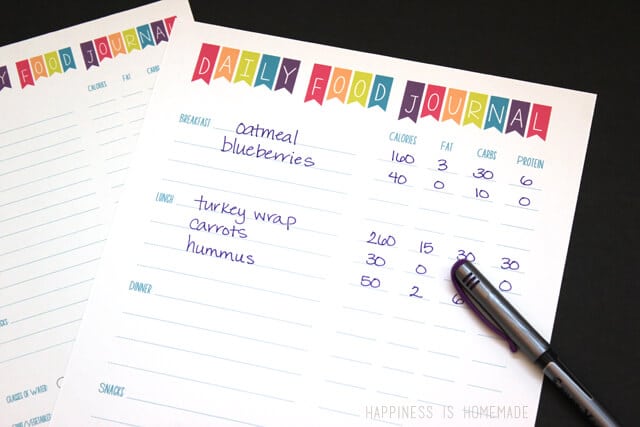 FOOD JOURNAL
CALORIES FAT CARBS
GLASSES OF WATER:
DAILY FOOD JOURNAL
CALORIES FAT CARBS PROTEIN
BREAKFAST oatmeal 160 3 30 6
blueberries 40 0 10 0
LUNCH turkey wrap 260 15 30 30
carrots 30 0 0
hummus 50 2 6
DINNER
SNACKS
HAPPINESS IS HOMEMADE